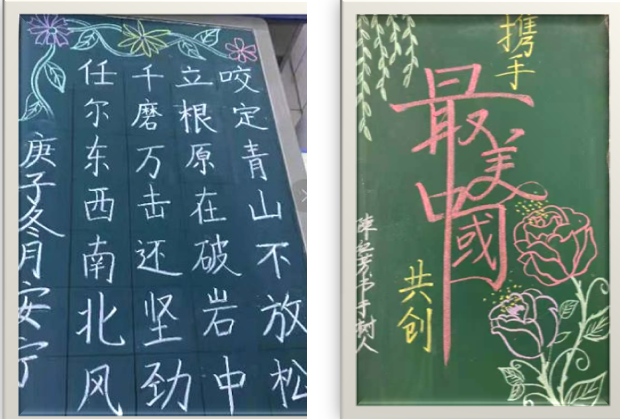 咬定青山不放松
立根原在破岩中
千磨万击还坚劲
任尔东西南北风
庚子冬月安宁
携手
最美中國
共创